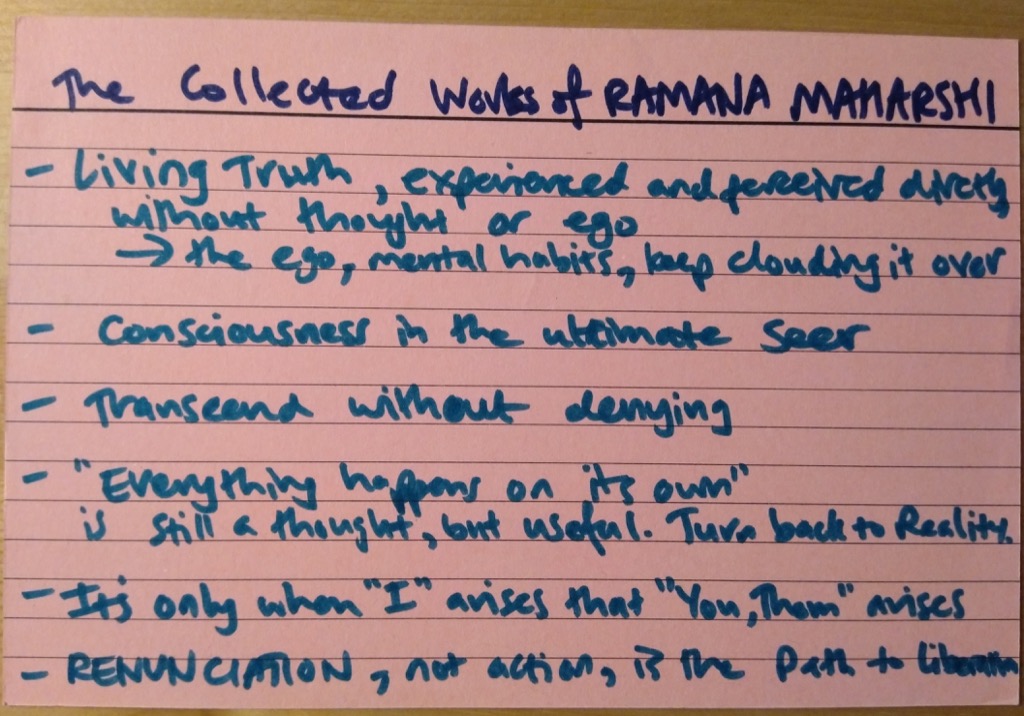 The Collected Works of RAMANA MAHARSHI
- Living Truth, experienced and perceived directly
without thought or ego
→ the ego, mental habits, keep clouding it over
- Consciousness is the ultimate Seer
- Transcend without denying
- "Everything happens on its own"
is still a thought, but useful. Turn back to Reality.
- It's only when "I" arises that "You, Them" arises
- RENUNCIATION, not action, is the Path to Liberation